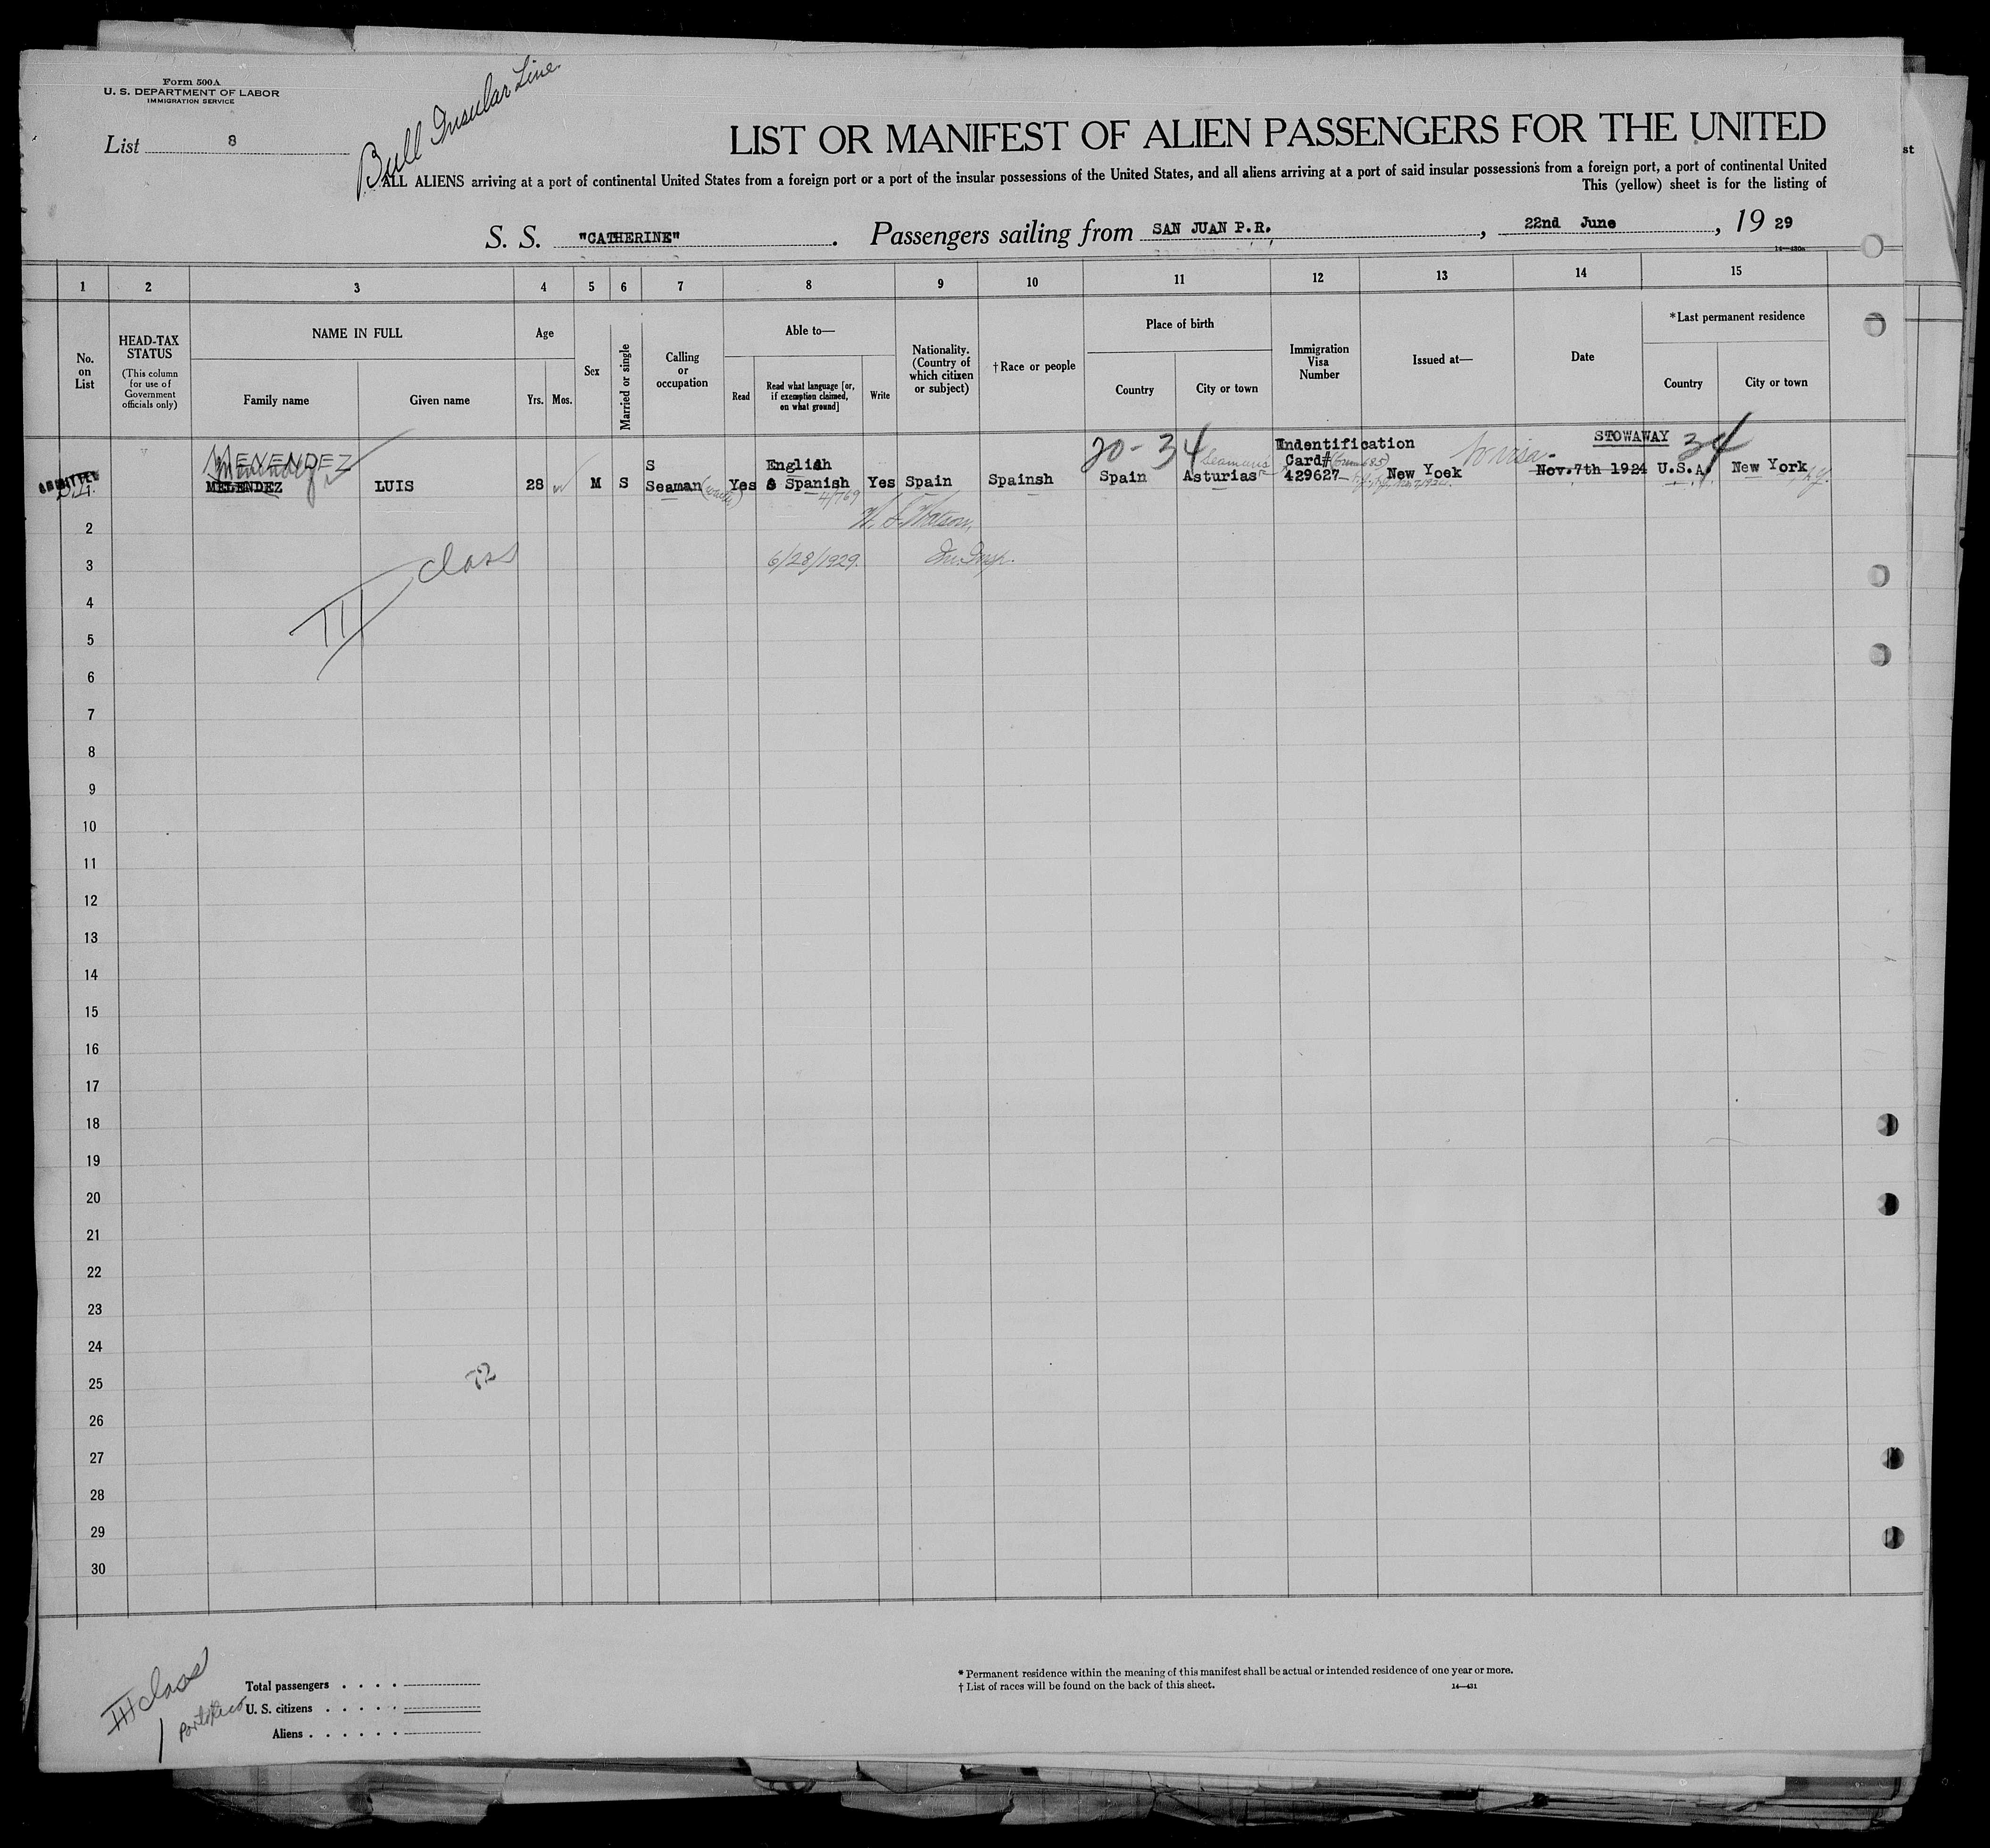 Form 500A
U. S. DEPARTMENT OF LABOR
IMMIGRATION SERVICE
Bull Insular Line
List 8
LIST OR MANIFEST OF ALIEN PASSENGERS FOR THE UNITED
ALL ALIENS arriving at a port of continental United States from a foreign port or a port of the insular possessions of the United States, and all aliens arriving at a port of said insular possessions from a foreign port, a port of continental United
This (yellow) sheet is for the listing of
S. S. "CATHERINE". Passengers sailing from SAN JUAN P.R., 22nd June, 19 29
14—430a
1 2 3 4 5 6 7 8 9 10 11 12 13 14 15
No. on List
HEAD-TAX STATUS
(This column for use of Government officials only)
NAME IN FULL
Family name
Given name
Age
Yrs. Mos.
Sex
Married or single
Calling or occupation
Able to—
Read
Read what language [or, if exemption claimed, on what ground]
Write
Nationality. (Country of which citizen or subject)
†Race or people
Place of birth
Country
City or town
Immigration Visa Number
Issued at—
Date
*Last permanent residence
Country
City or town
MENENDEZ
Menendez
MELENDEZ LUIS 28 M S
S
Seaman Yes
English
& Spanish Yes Spain Spainsh
20-34
Spain Asturias
Seaman's
Indentification
Card#
429627 New Yoek
no visa-
STOWAWAY
Nov.7th 1924
34
U.S.A. New York N.Y.
4/769
W. J. Watson
6/28/1929. Im. Insp.
2
3
III class
4
5
6
7
8
9
10
11
12
13
14
15
16
17
18
19
20
21
22
23
24
25
72
26
27
28
29
30
III class
1 Porto Rico
Total passengers . . . .
U. S. citizens . . . . .
Aliens . . . . . .
* Permanent residence within the meaning of this manifest shall be actual or intended residence of one year or more.
† List of races will be found on the back of this sheet.
14—431